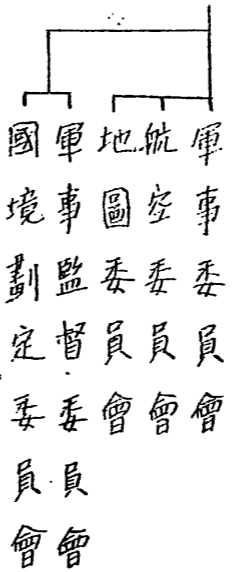 軍事委員會
航空委員會
地圖委員會
軍事監督委員會
國境劃定委員會